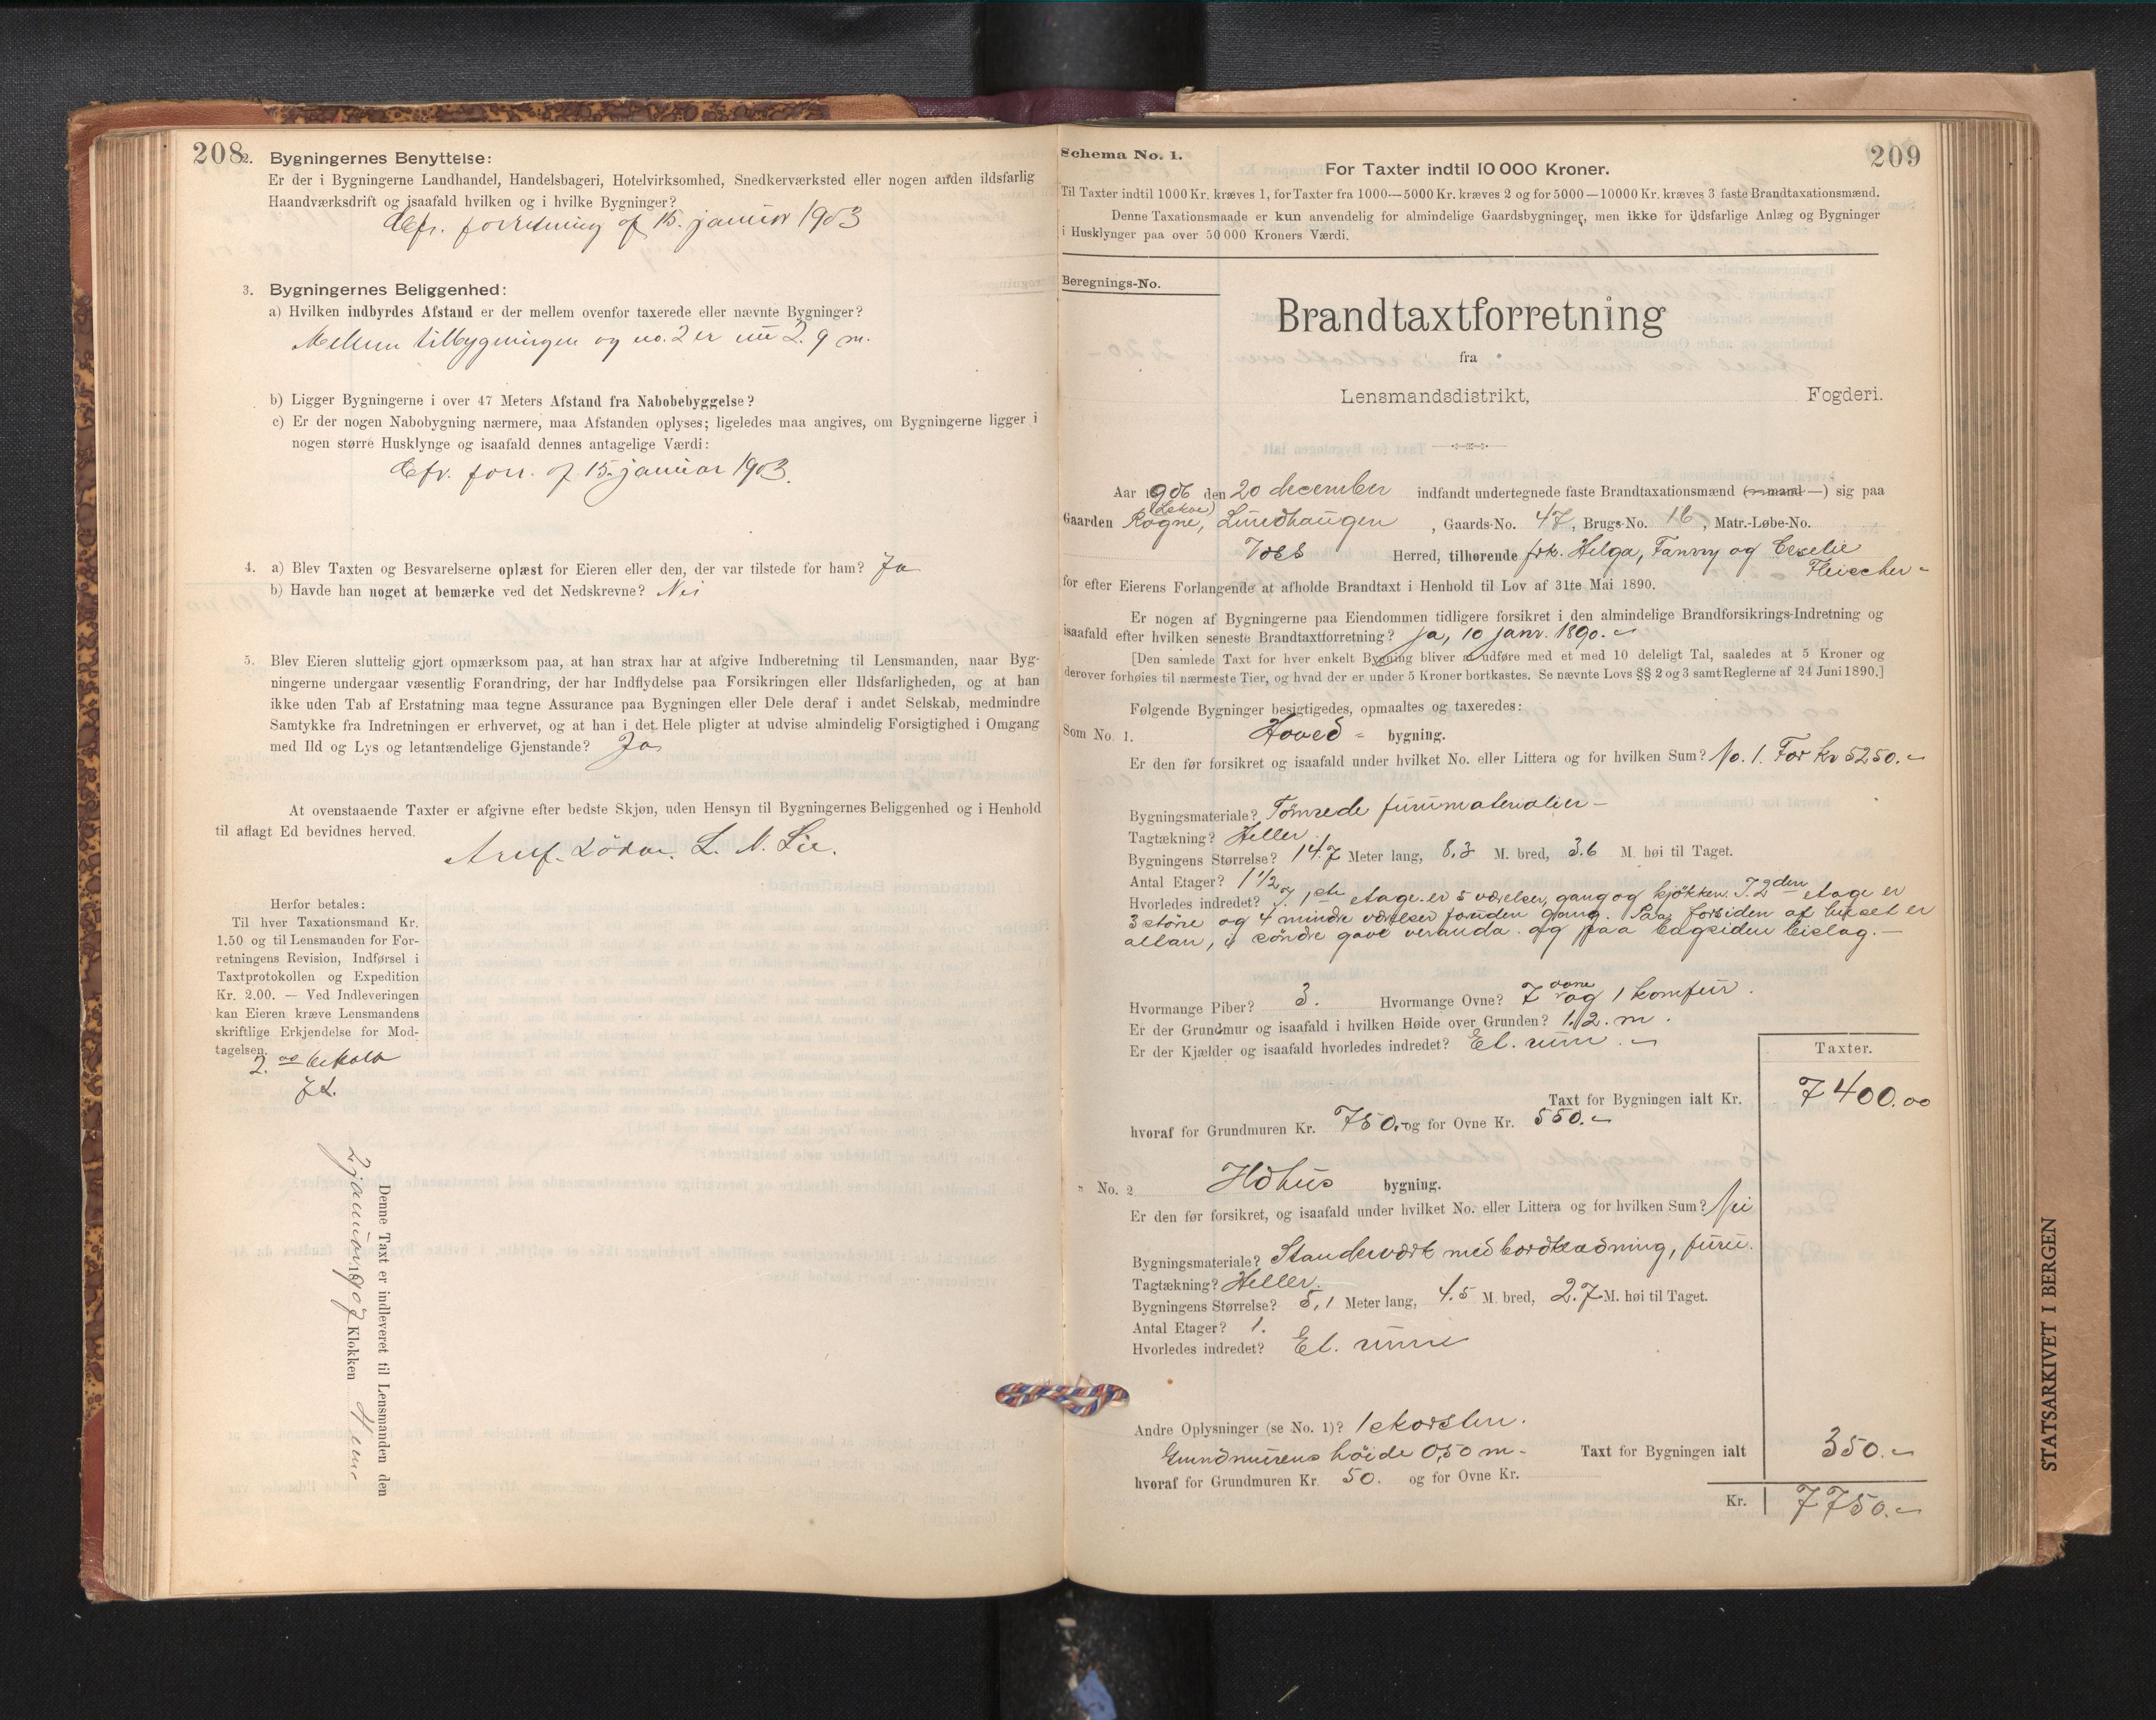 208
2. Bygningernes Benyttelse:
Er der i Bygningerne Landhandel, Handelsbageri, Hotelvirksomhed, Snedkerværksted eller nogen anden ildsfarlig
Haandværksdrift og isaafald hvilken og i hvilke Bygninger?
Cfr. forretning af 15. januar 1903
3. Bygningernes Beliggenhed:
a) Hvilken indbyrdes Afstand er der mellem ovenfor taxerede eller nævnte Bygninger?
Mellem tilbygningen og no. 2 er nu 2.9 m.
b) Ligger Bygningerne i over 47 Meters Afstand fra Nabobebyggelse?
c) Er der nogen Nabobygning nærmere, maa Afstanden oplyses; ligeledes maa angives, om Bygningerne ligger i
nogen større Husklynge og isaafald dennes antagelige Værdi:
Cfr. forr. af 15. januar 1903.
4. a) Blev Taxten og Besvarelserne oplæst for Eieren eller den, der var tilstede for ham? Ja
b) Havde han noget at bemærke ved det Nedskrevne? Nei
5. Blev Eieren sluttelig gjort opmærksom paa, at han strax har at afgive Indberetning til Lensmanden, naar Byg-
ningerne undergaar væsentlig Forandring, der har Indflydelse paa Forsikringen eller Ildsfarligheden, og at han
ikke uden Tab af Erstatning maa tegne Assurance paa Bygningen eller Dele deraf i andet Selskab, medmindre
Samtykke fra Indretningen er erhvervet, og at han i det Hele pligter at udvise almindelig Forsigtighed i Omgang
med Ild og Lys og letantændelige Gjenstande? Ja
At ovenstaaende Taxter er afgivne efter bedste Skjøn, uden Hensyn til Bygningernes Beliggenhed og i Henhold
til aflagt Ed bevidnes herved.
L. N. Lie.
Herfor betales:
Til hver Taxationsmand Kr.
1.50 og til Lensmanden for For-
retningens Revision, Indførsel i
Taxtprotokollen og Expedition
Kr. 2.00. — Ved Indleveringen
kan Eieren kræve Lensmandens
skriftlige Erkjendelse for Mod-
tagelsen.
2.00 betalt
Denne Taxt er indleveret til Lensmanden den
2 januar 1907 Klokken
209
Schema No. 1.
For Taxter indtil 10 000 Kroner.
Til Taxter indtil 1000 Kr. kræves 1, for Taxter fra 1000—5000 Kr. kræves 2 og for 5000—10000 Kr. kræves 3 faste Brandtaxationsmænd.
Denne Taxationsmaade er kun anvendelig for almindelige Gaardsbygninger, men ikke for ildsfarlige Anlæg og Bygninger
i Husklynger paa over 50 000 Kroners Værdi.
Beregnings-No.
Brandtaxtforretning
fra
Lensmandsdistrikt, Fogderi.
Aar 1906 den 20 december indfandt undertegnede faste Brandtaxationsmænd (— mand —) sig paa
Gaarden Rogne, (Lekve) Lundhaugen, Gaards-No. 47, Brugs-No. 16, Matr.-Løbe-No.
Voss Herred, tilhørende frk. Helga, Fanny og Cecelie
Fleischer
for efter Eierens Forlangende at afholde Brandtaxt i Henhold til Lov af 31te Mai 1890.
Er nogen af Bygningerne paa Eiendommen tidligere forsikret i den almindelige Brandforsikrings-Indretning og
isaafald efter hvilken seneste Brandtaxtforretning? Ja, 10 janr. 1890.
[Den samlede Taxt for hver enkelt Bygning bliver at udføre med et med 10 deleligt Tal, saaledes at 5 Kroner og
derover forhøies til nærmeste Tier, og hvad der er under 5 Kroner bortkastes. Se nævnte Lovs §§ 2 og 3 samt Reglerne af 24 Juni 1890.]
Følgende Bygninger besigtigedes, opmaaltes og taxeredes:
Som No. 1. Hoved- bygning.
Er den før forsikret og isaafald under hvilket No. eller Littera og for hvilken Sum? No. 1. For kr 5250.
Bygningsmateriale? Tømrede furumaterialier
Tagtækning? Heller.
Bygningens Størrelse? 14.7 Meter lang, 8,3 M. bred, 3.6 M. høi til Taget.
Antal Etager? 1 1/2
Hvorledes indredet? I 1ste etage er 5 værelser, gang og kjøkken. I 2den etage er
3 større og 4 mindre værelser foruden gang. Paa forsiden af huset er
altan, i søndre gavl veranda og paa bagsiden bislag.
Hvormange Piber? 3. Hvormange Ovne? 7 ovne og 1 komfur.
Er der Grundmur og isaafald i hvilken Høide over Grunden? 1.2. m.
Er der Kjælder og isaafald hvorledes indredet? Et. rum.
Taxter.
Taxt for Bygningen ialt Kr. 7400.00
hvoraf for Grundmuren Kr. 750.- og for Ovne Kr. 550.
" No. 2 Ildhus bygning.
Er den før forsikret, og isaafald under hvilket No. eller Littera og for hvilken Sum? Nei
Bygningsmateriale? Standerværk med bordklædning, furu.
Tagtækning? Heller.
Bygningens Størrelse? 5,1 Meter lang, 4.5 M. bred, 2.7 M. høi til Taget.
Antal Etager? 1.
Hvorledes indredet? Et. rum
Andre Oplysninger (se No. 1)? 1 skorsten.
Grundmurens høide 0,50 m. Taxt for Bygningen ialt 350.
hvoraf for Grundmuren Kr. 50. og for Ovne Kr.
Kr. 7750.
STATSARKIVET I BERGEN